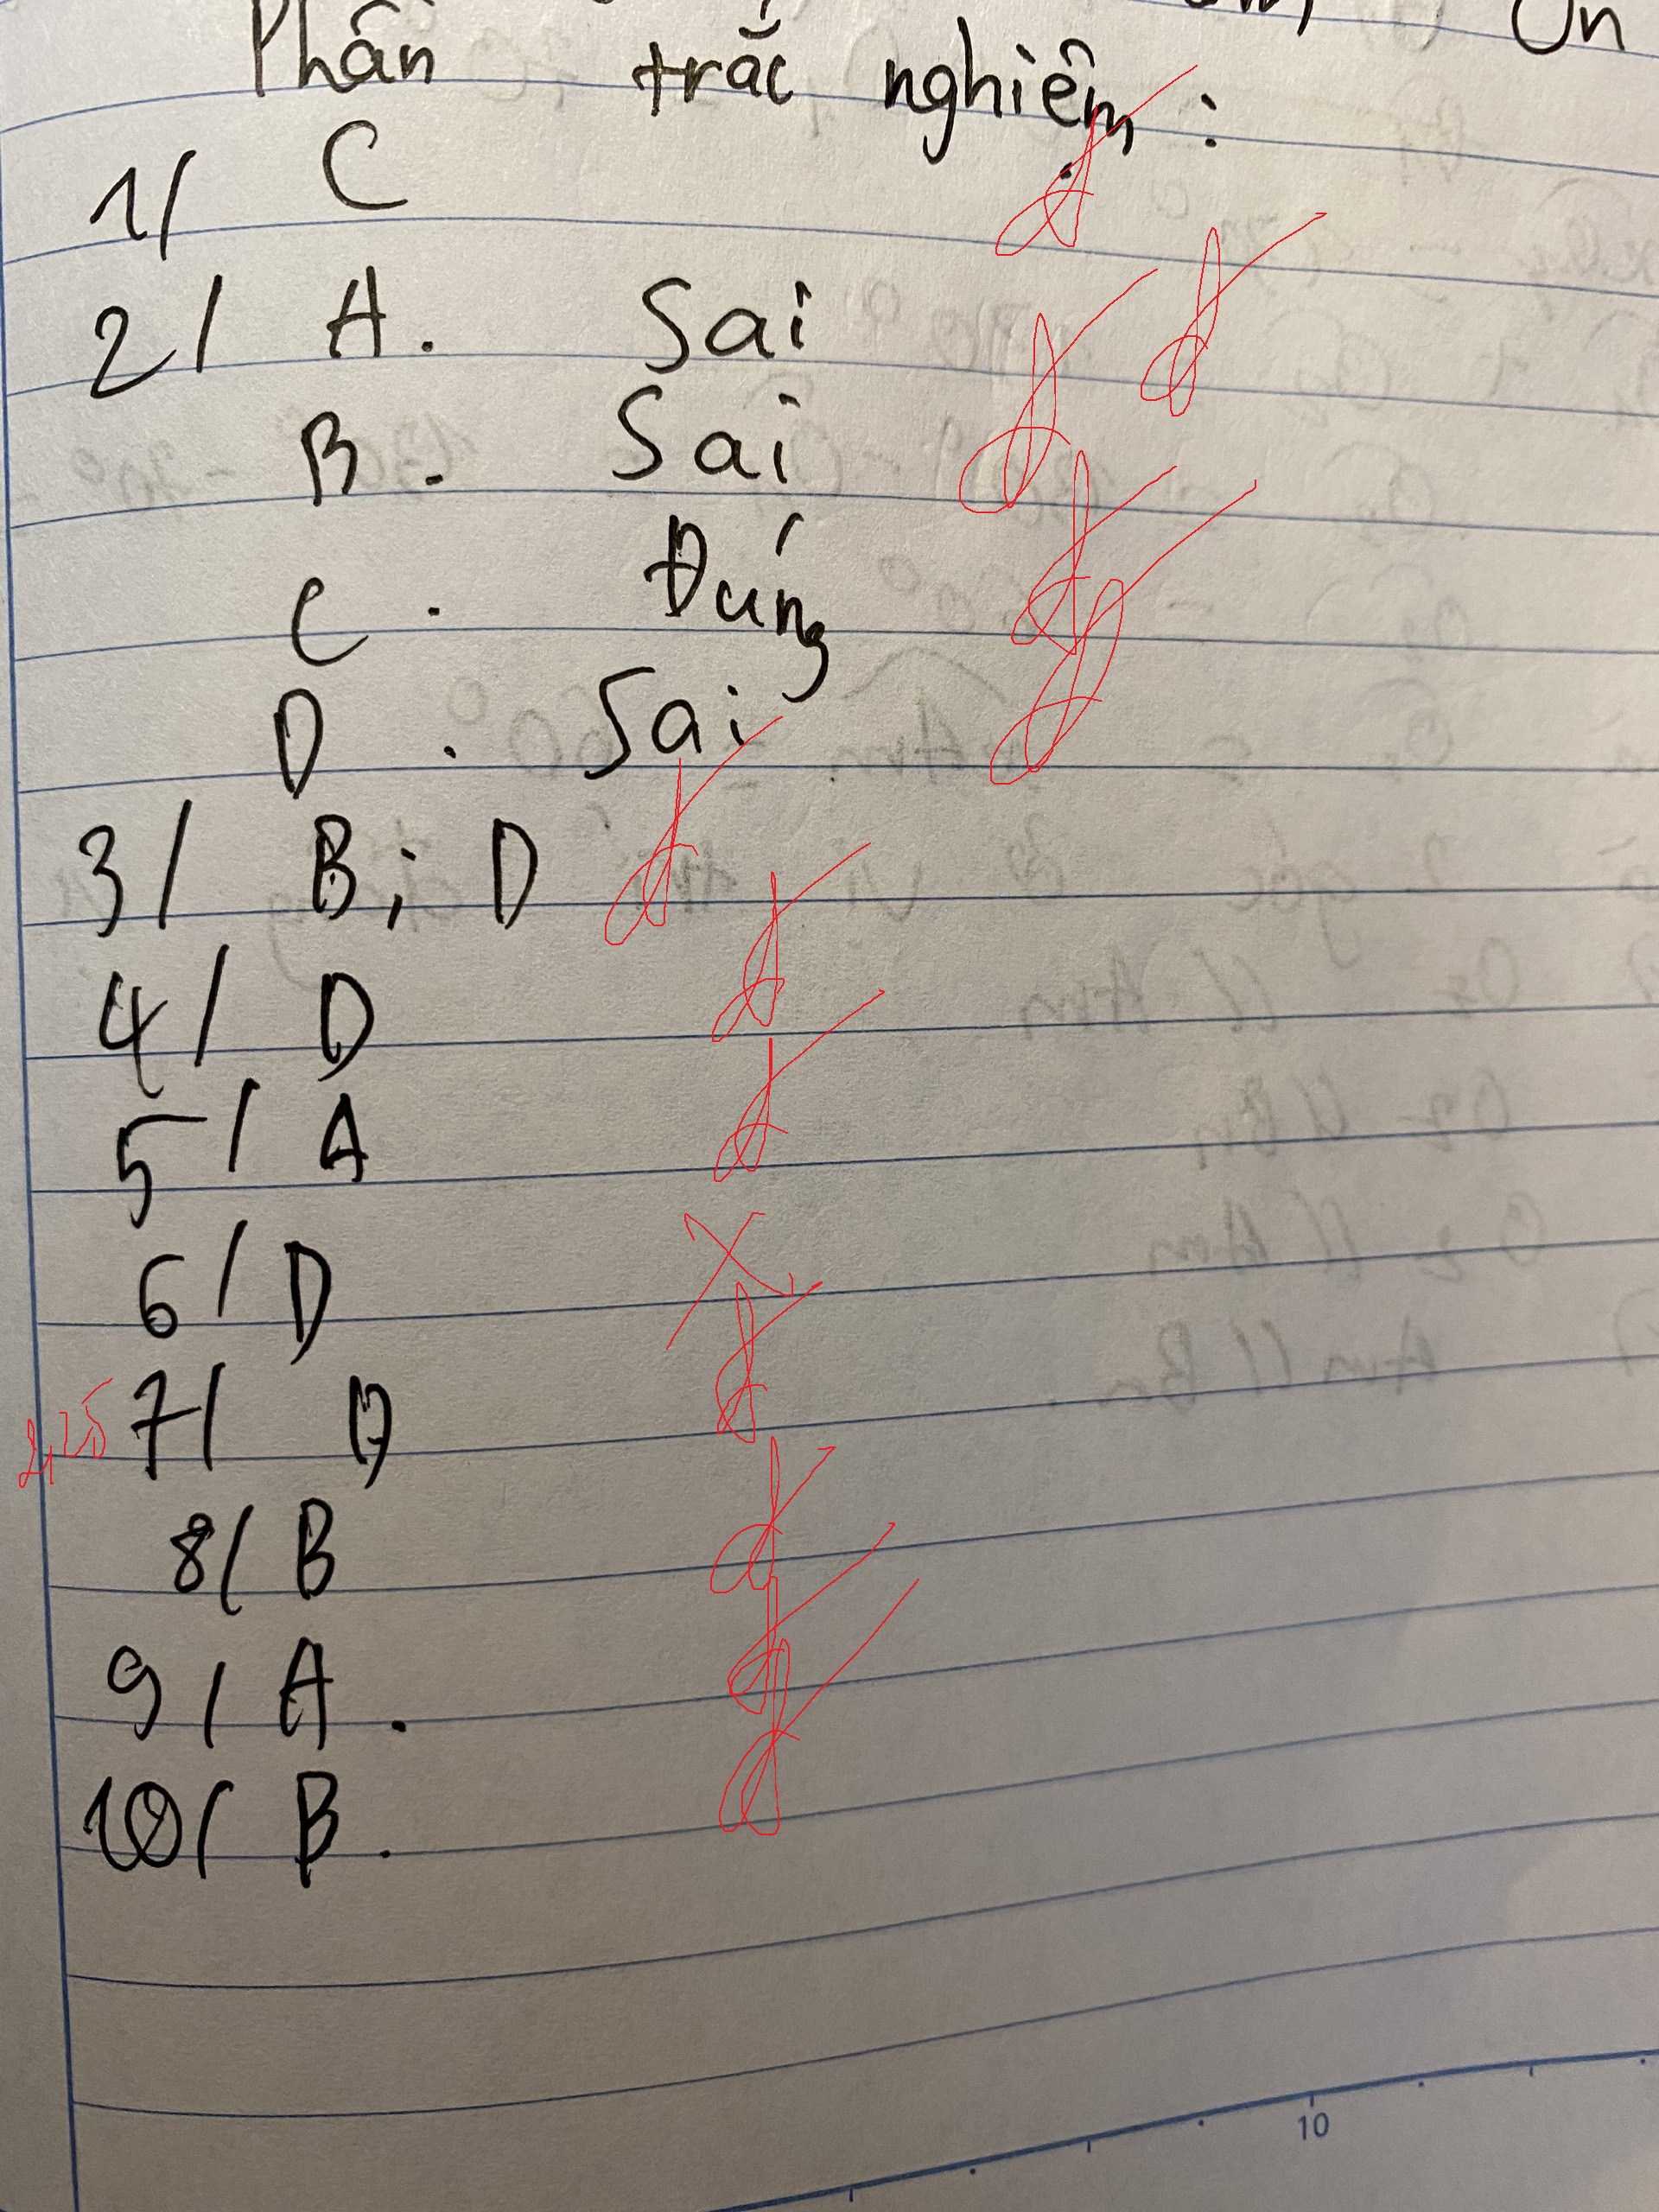 Ôn
Phần trắc nghiệm :
1/ C
2/ A. Sai
B. Sai
C. Đúng
D. Sai
3/ B; D
4/ D
5/ A
6/ D
2,25
7/ D
8/ B
9/ A.
10/ B.
10